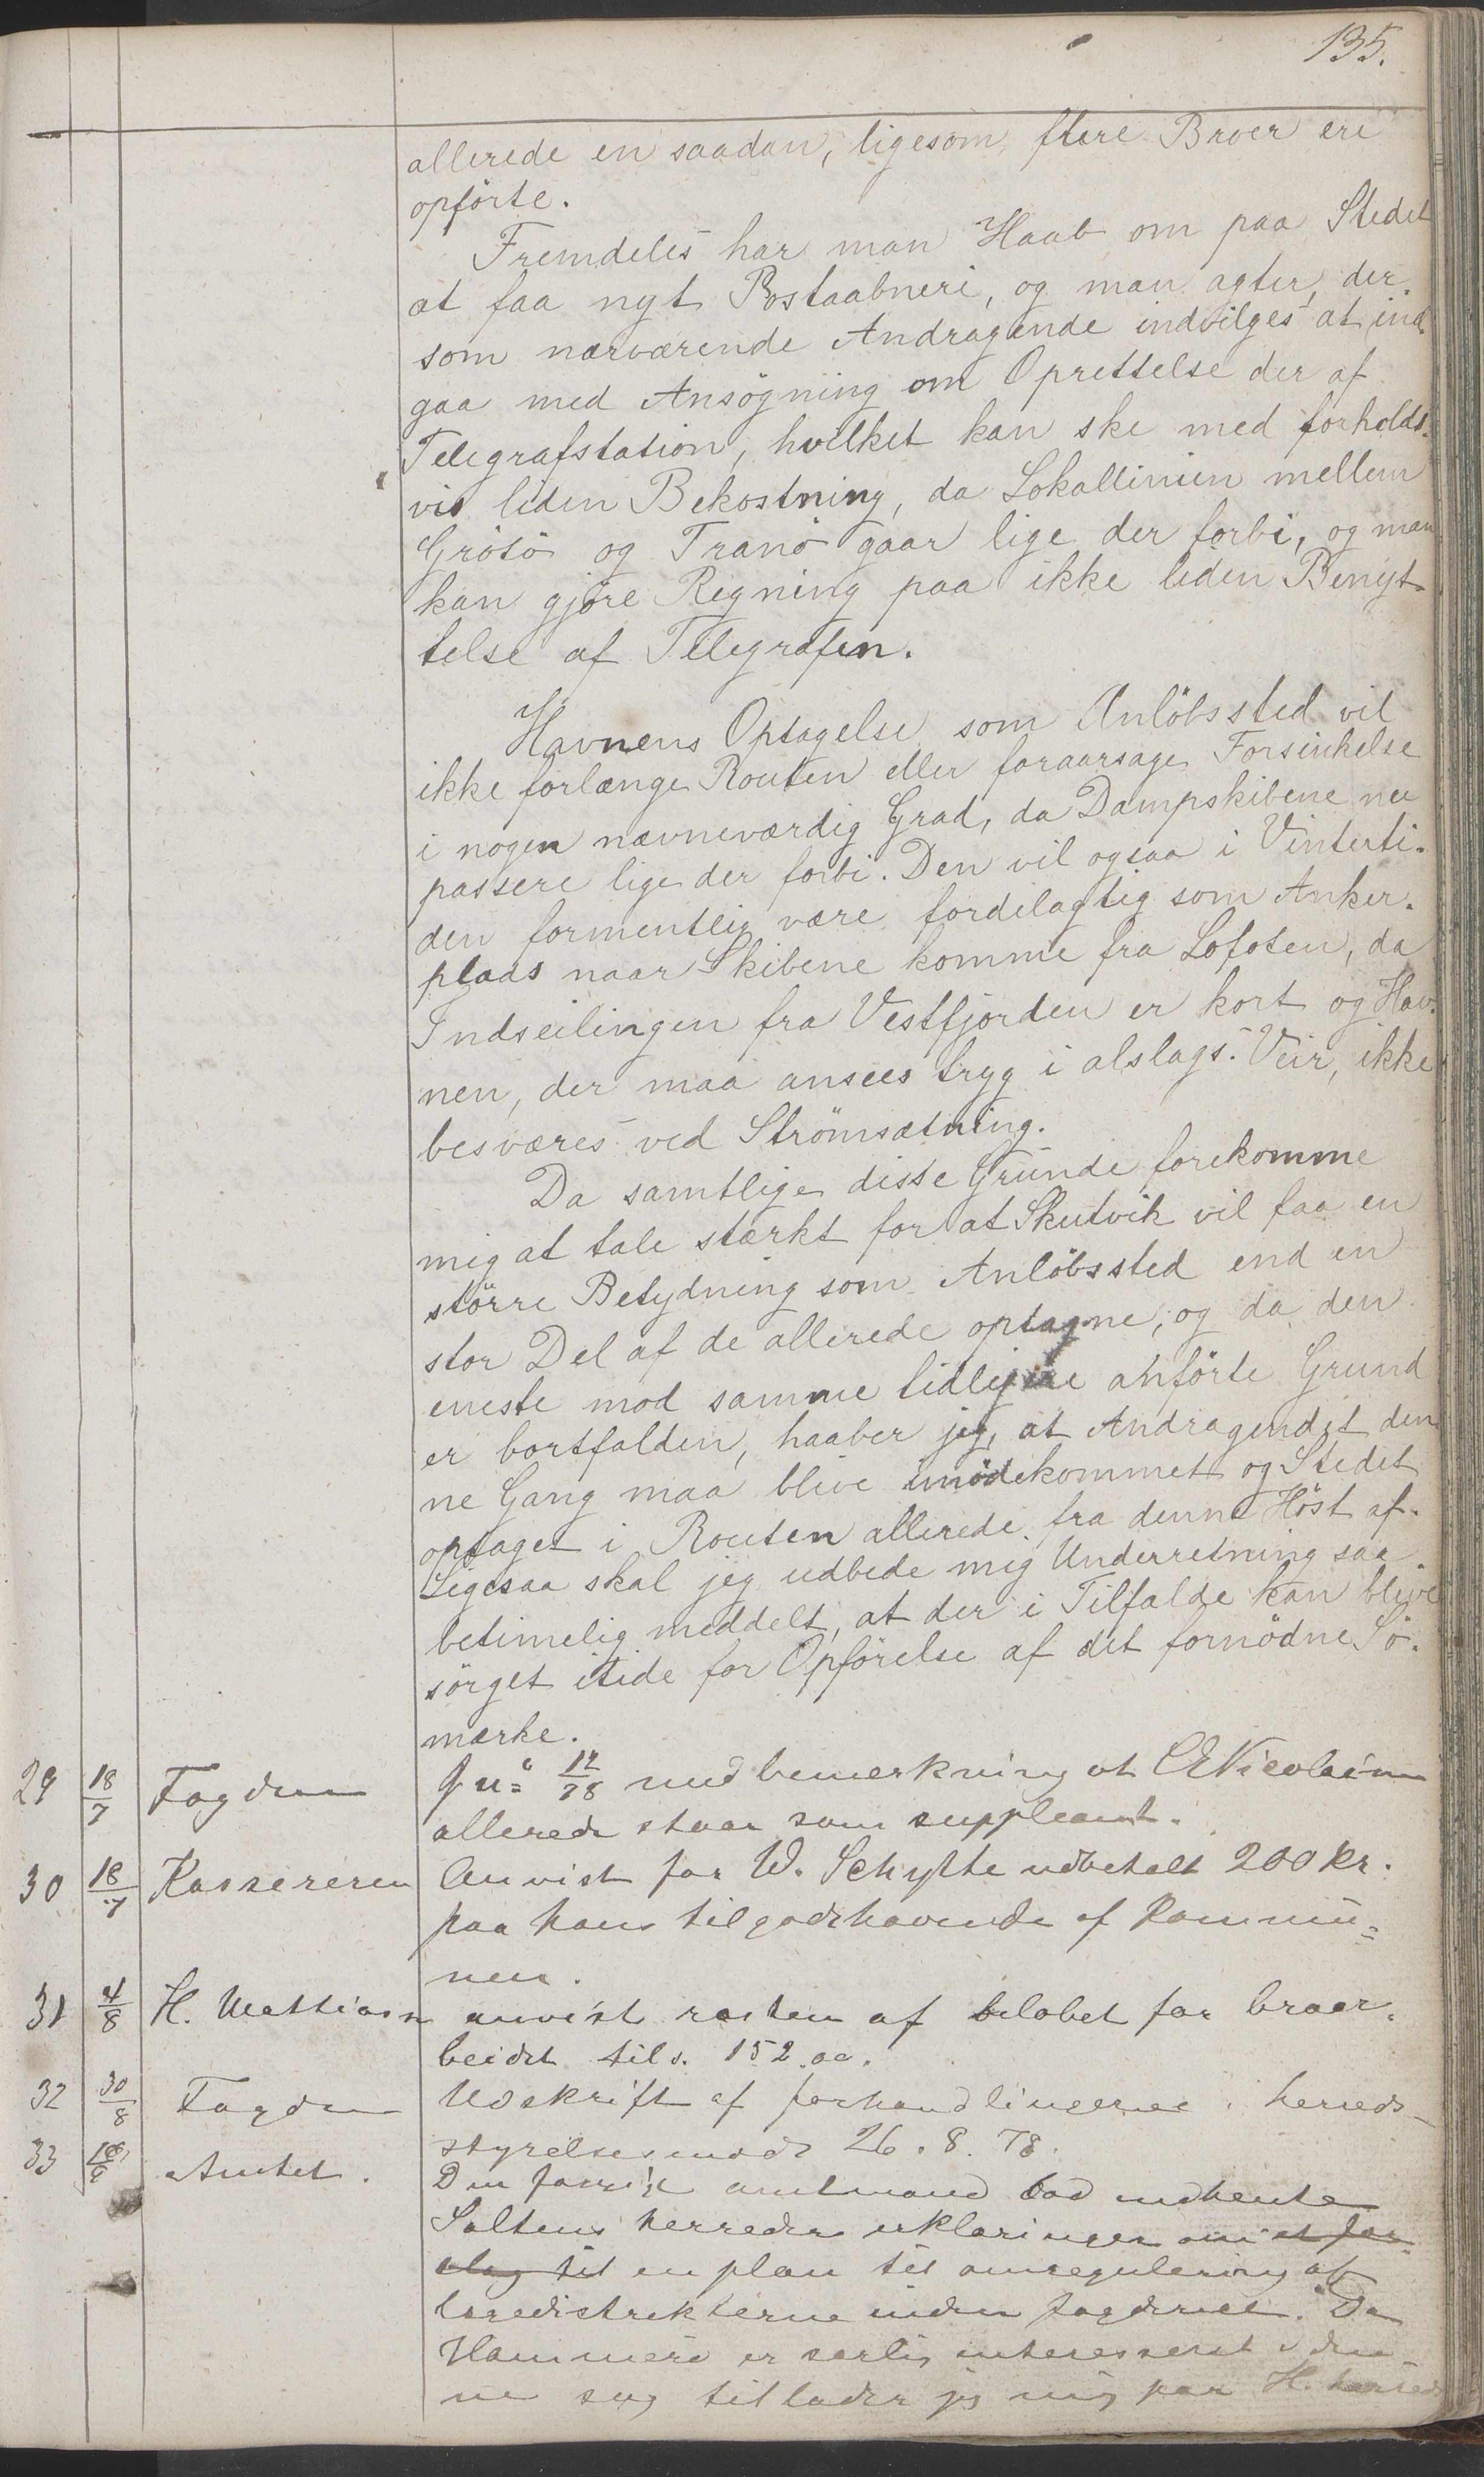 135.
allerede en saadan, ligesom flere Broer ere
opførte.
Fremdeles har man Haab om paa Stedet
at faa nyt Postaabneri, og man agter, der-
som nærværende Andragende indvilges at ind-
gaa med Ansøgning om Oprettelse der af
Telegrafstation, hvilket kan ske med forholds-
vis liden Bekostning, da Lokallinien mellem
Grøtø og Tranø gaar lige der forbi, og man
kan gjøre Regning paa ikke liden Benyt-
telse af Telegrafen.
Havnens Optagelse som Anløbssted vil
ikke forlænge Routen eller foraarsage Forsinkelse
i nogen nævneværdig Grad, da Dampskibene nu
passere lige der forbi. Den vil ogsaa i Vinterti-
den formentlig være fordelagtig som Anker-
plads naar Skibene komme fra Lofoten, da
Indseilingen fra Vestfjorden er kort og Hav-
nen, der maa ansees tryg i alslags Veir, ikke
besværes ved Strømsætning.
Da samtlige disse Grunde forekomme
mig at tale stærkt for at Skutvik vil faa en
større Betydning som Anløbssted end en
stor Del af de allerede optagne, og da den
eneste mod samme tidligere anførte Grund
er bortfalden, haaber jeg, at Andragendet den-
ne Gang maa blive imødekommet og Stedet
optaget i Routen allerede fra denne Høst af.
Ligesaa skal jeg udbede mig Underretning saa
betimelig meddelt, at der i Tilfælde kan blive
sørget itide for Opførelse af det fornødne Sø-
mærke.
29 18/7 Fogden
med bemerkning at Nicolaisen
allerede staar som suppleant.
30 18/7 Kassereren Anvist for W. Schytte udbetalt 200 kr.
paa hans tilgodehavende af Kommu-
nen.
31 4/8 H. Mathiasen anvist resten af beløbet for broar-
beidet tils. 152.00.
32 30/8 Fogden Udskrift af forhandlingerne i herreds-
styrelsesmøde 26.8.78.
33 Amtet. Den forrige amtmand lod indhente
Saltens herreders erklæringer om et for-
slag til en plan til omregulering af
lægedistrikterne inden fogderiet. Da
Hammerø er særlig interesseret i den-
ne sag tillader jeg mig paa H. herreds